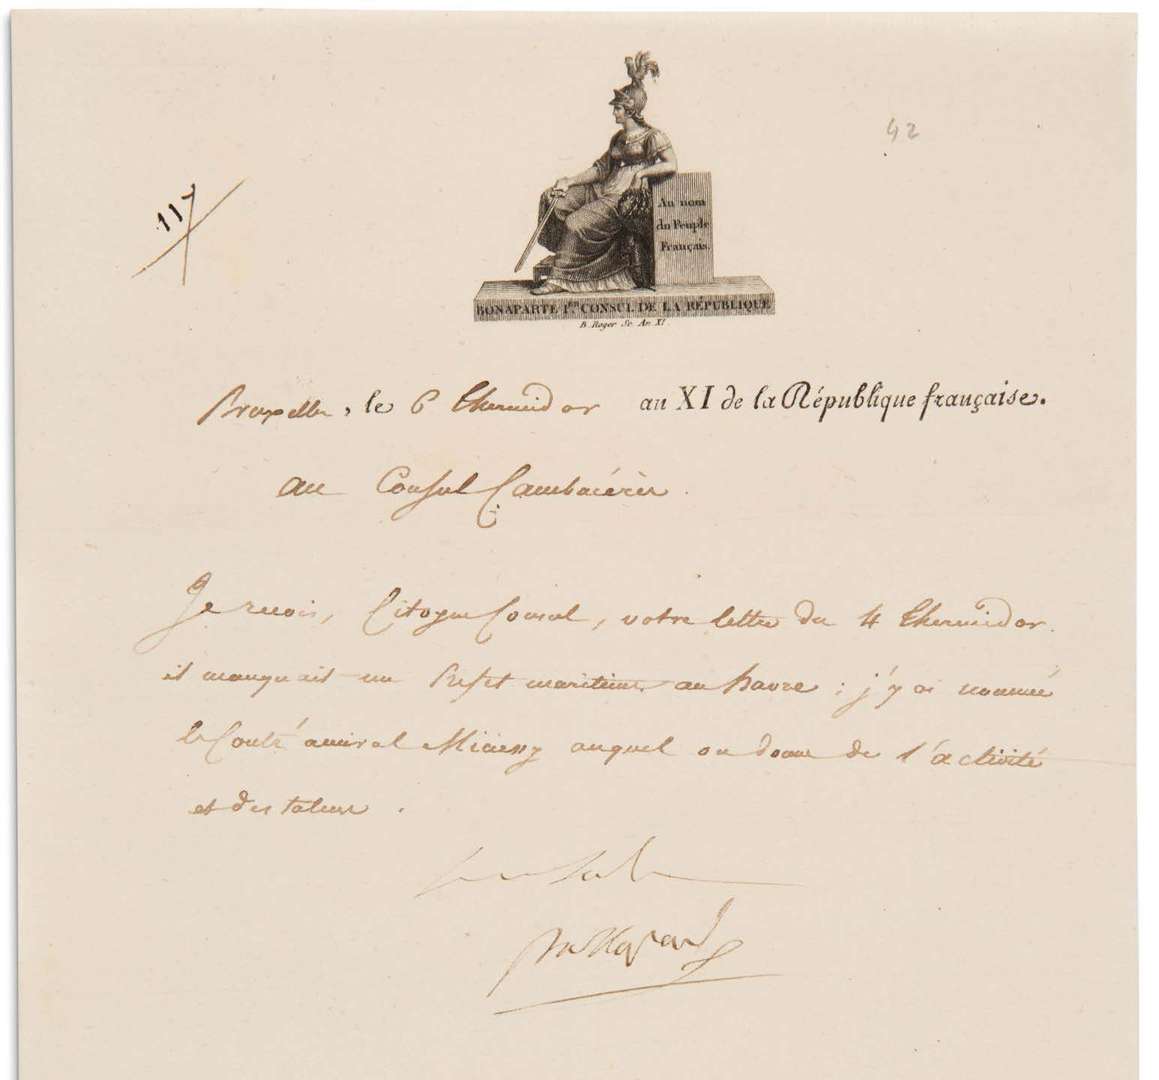 42
117
Au nom
du Peuple
Français.
BONAPARTE 1er. CONSUL DE LA RÉPUBLIQUE
B. Roger Sc. An XI
Bruxelles, le 6 thermidor an XI de la République française.
au Consul Cambacérès.
Je reçois, Citoyen Consul, votre lettre du 4 thermidor.
il manquait un Préfet maritime au havre ; j'y ai nommé
le Contre amiral auquel on donne de l'activité
et des talens.
Bonaparte